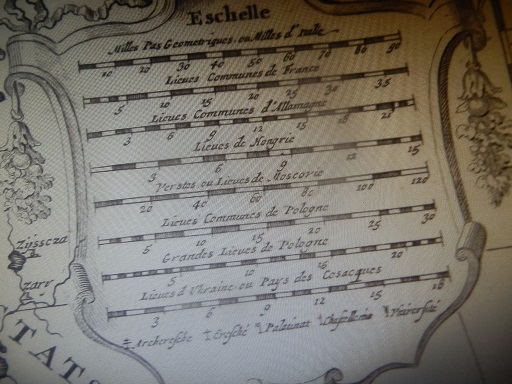 Eschelle
Milles Pas Geometriques, ou Milles d'Italie
10 20 30 40 50 60 70 80 90
Lieues Communes de France
5 10 15 20 25 30 35
Lieues Communes d'Allemagne
3 6 9 12 15 18 21
Lieues de Hongrie
3 6 9 12 15
Verstes ou Lieues de Moscovie
20 40 60 80 100 120
Lieues Communes de Pologne
5 10 15 20 25 30
Grandes Lieues de Pologne
5 10 15 20
Lieues d'Ukraine ou Pays des Cosacques
3 6 9 12 15 18
Archevesche Evesché Palatinat Chastellenie
Ziisscza
zarr
TATS